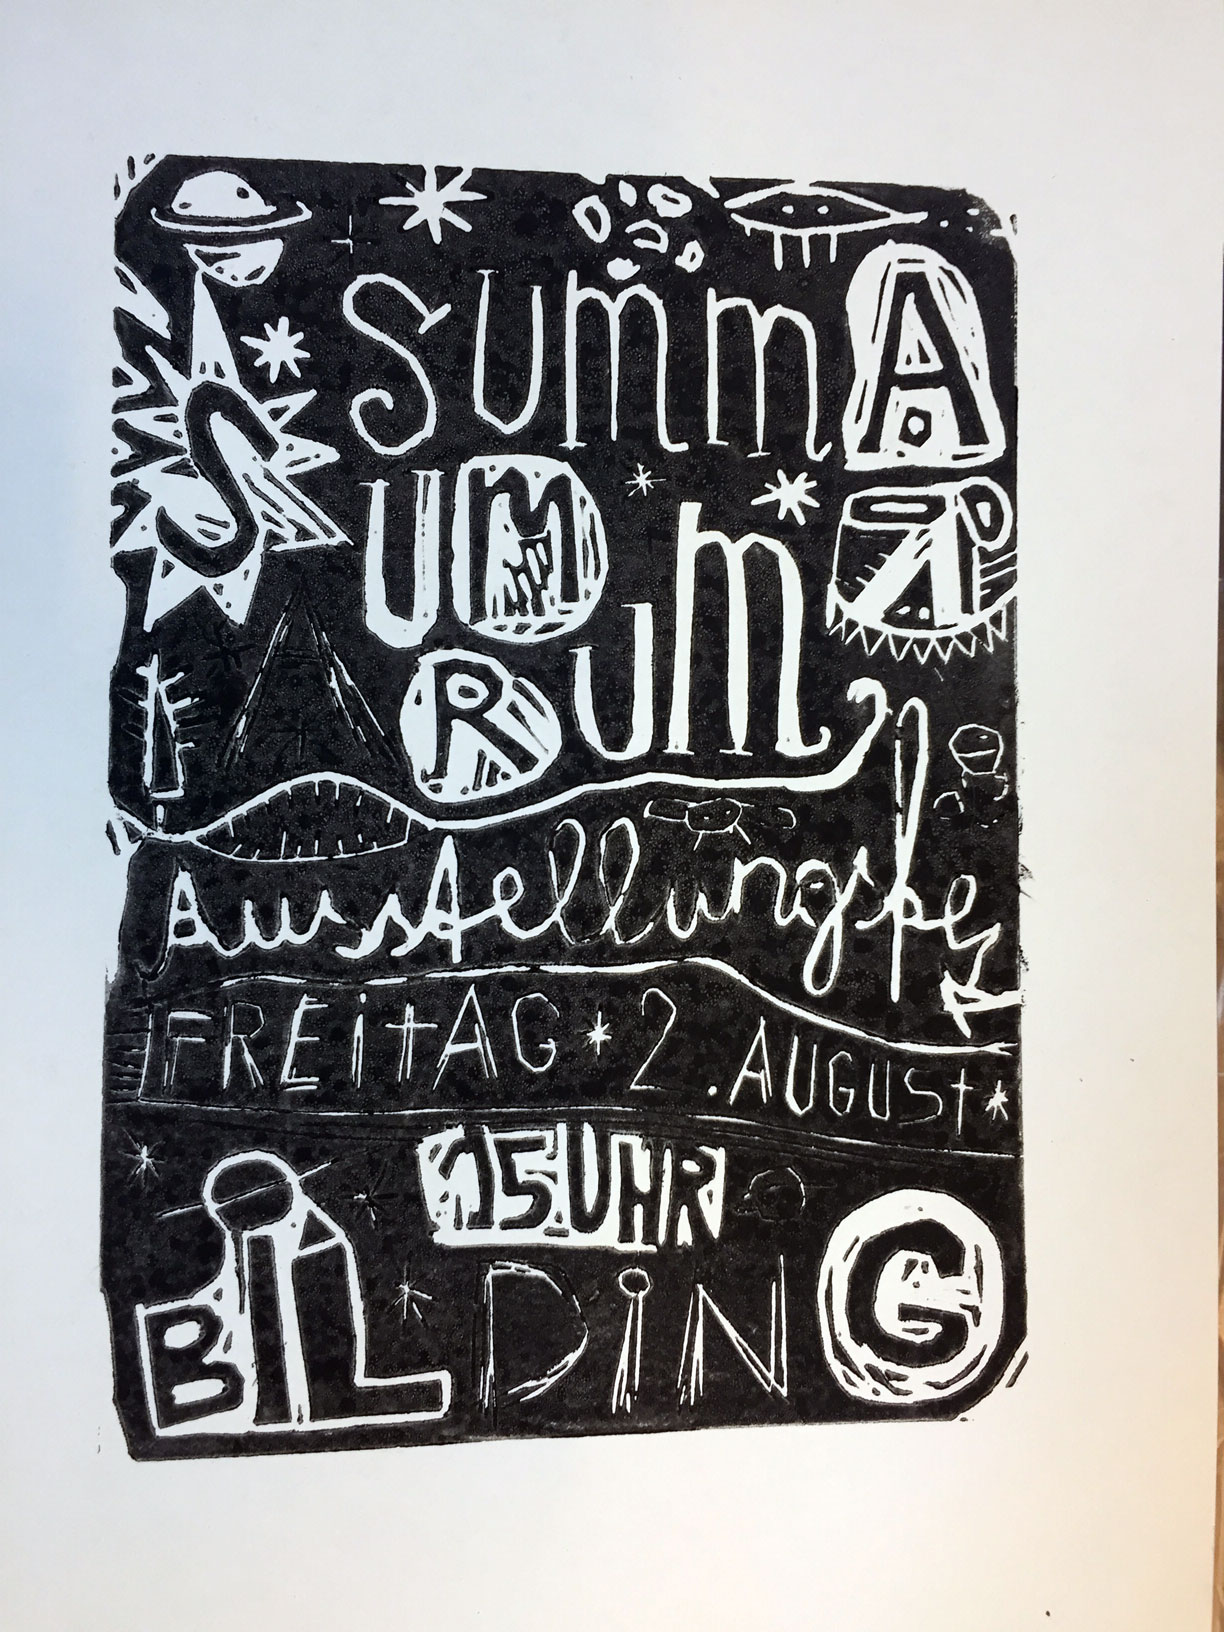 SUMMA
SUMM
ARUM
Ausstellungsfest
FREiTAG * 2. AUGUST *
15 UHR
BiLDiNG